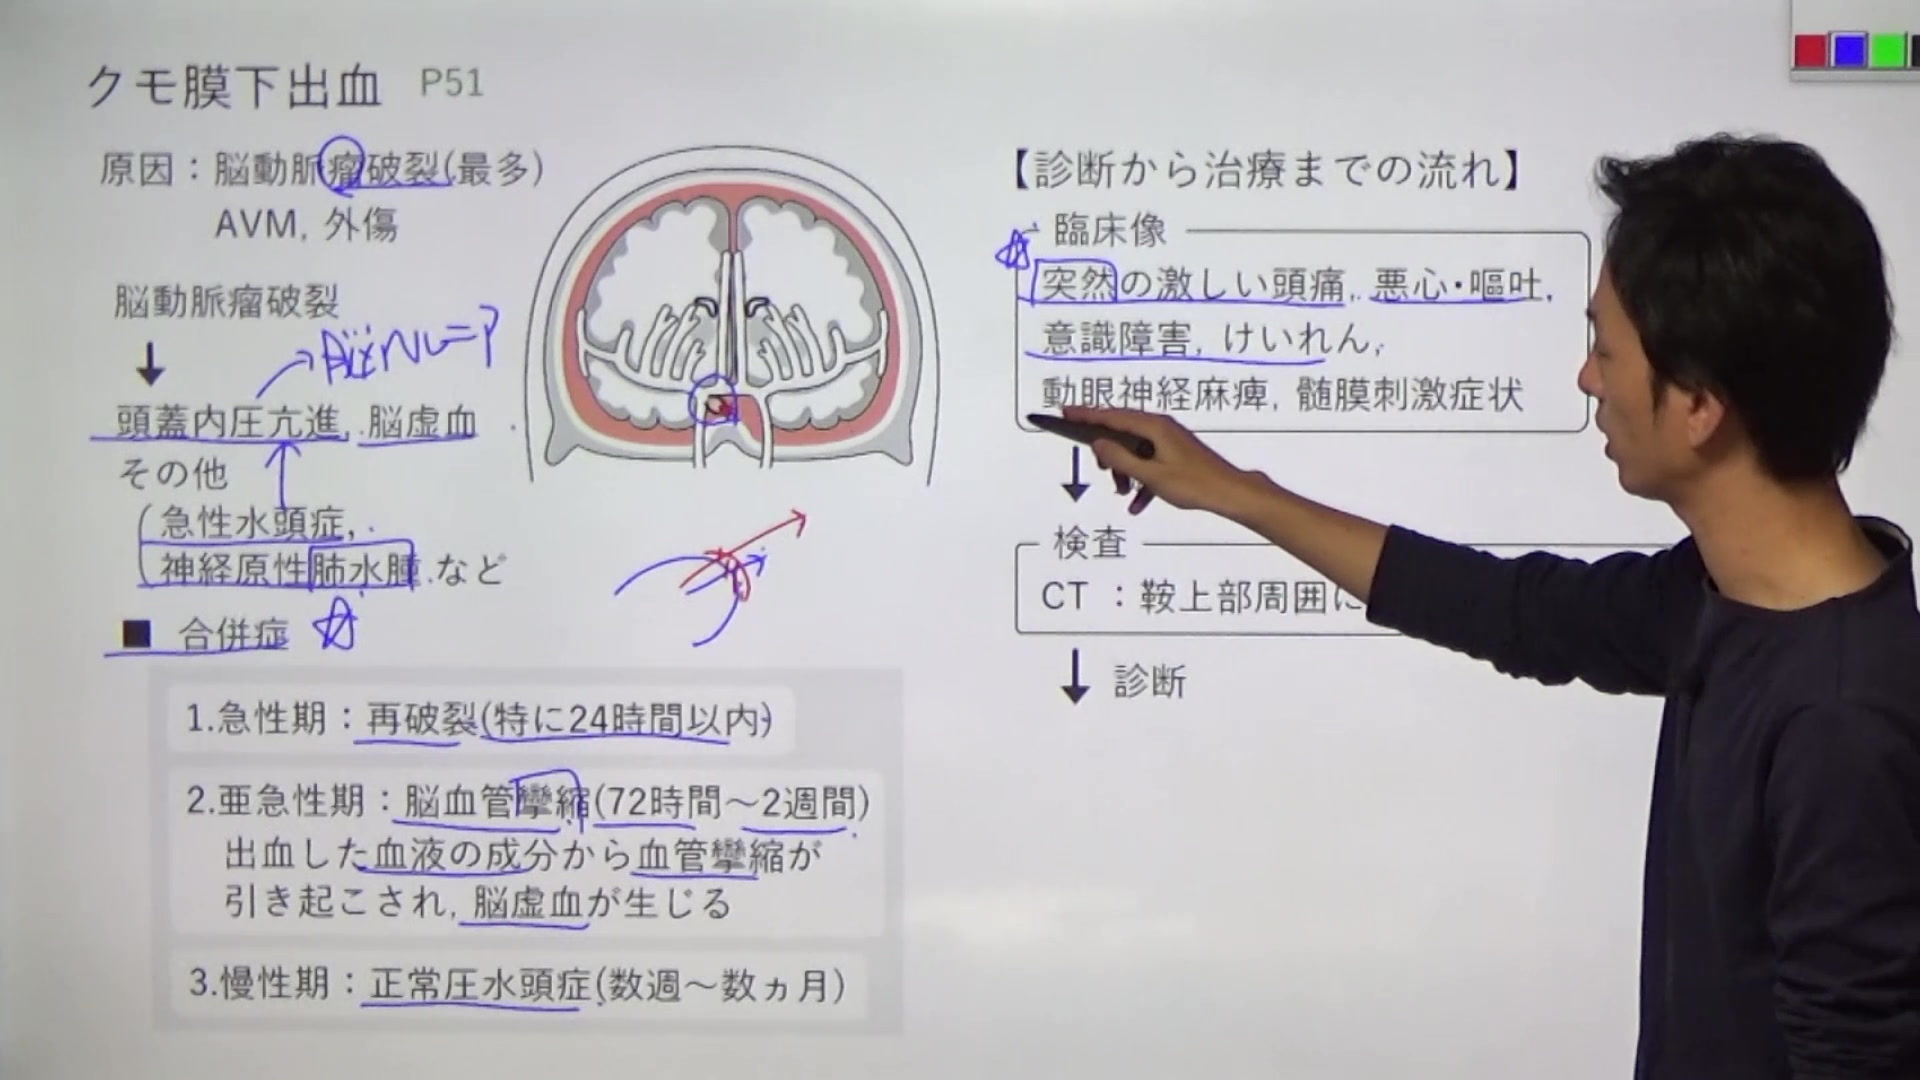 クモ膜下出血 P51
原因：脳動脈瘤破裂(最多)
AVM, 外傷
脳動脈瘤破裂
↓
→脳ヘルニア
頭蓋内圧亢進, 脳虚血
その他
急性水頭症,
神経原性肺水腫 など
■ 合併症
1.急性期：再破裂(特に24時間以内)
2.亜急性期：脳血管攣縮(72時間～2週間)
出血した血液の成分から血管攣縮が
引き起こされ, 脳虚血が生じる
3.慢性期：正常圧水頭症(数週～数ヵ月)
【診断から治療までの流れ】
臨床像
突然の激しい頭痛, 悪心・嘔吐,
意識障害, けいれん,
動眼神経麻痺, 髄膜刺激症状
↓
検査
CT ：鞍上部周囲に
↓ 診断